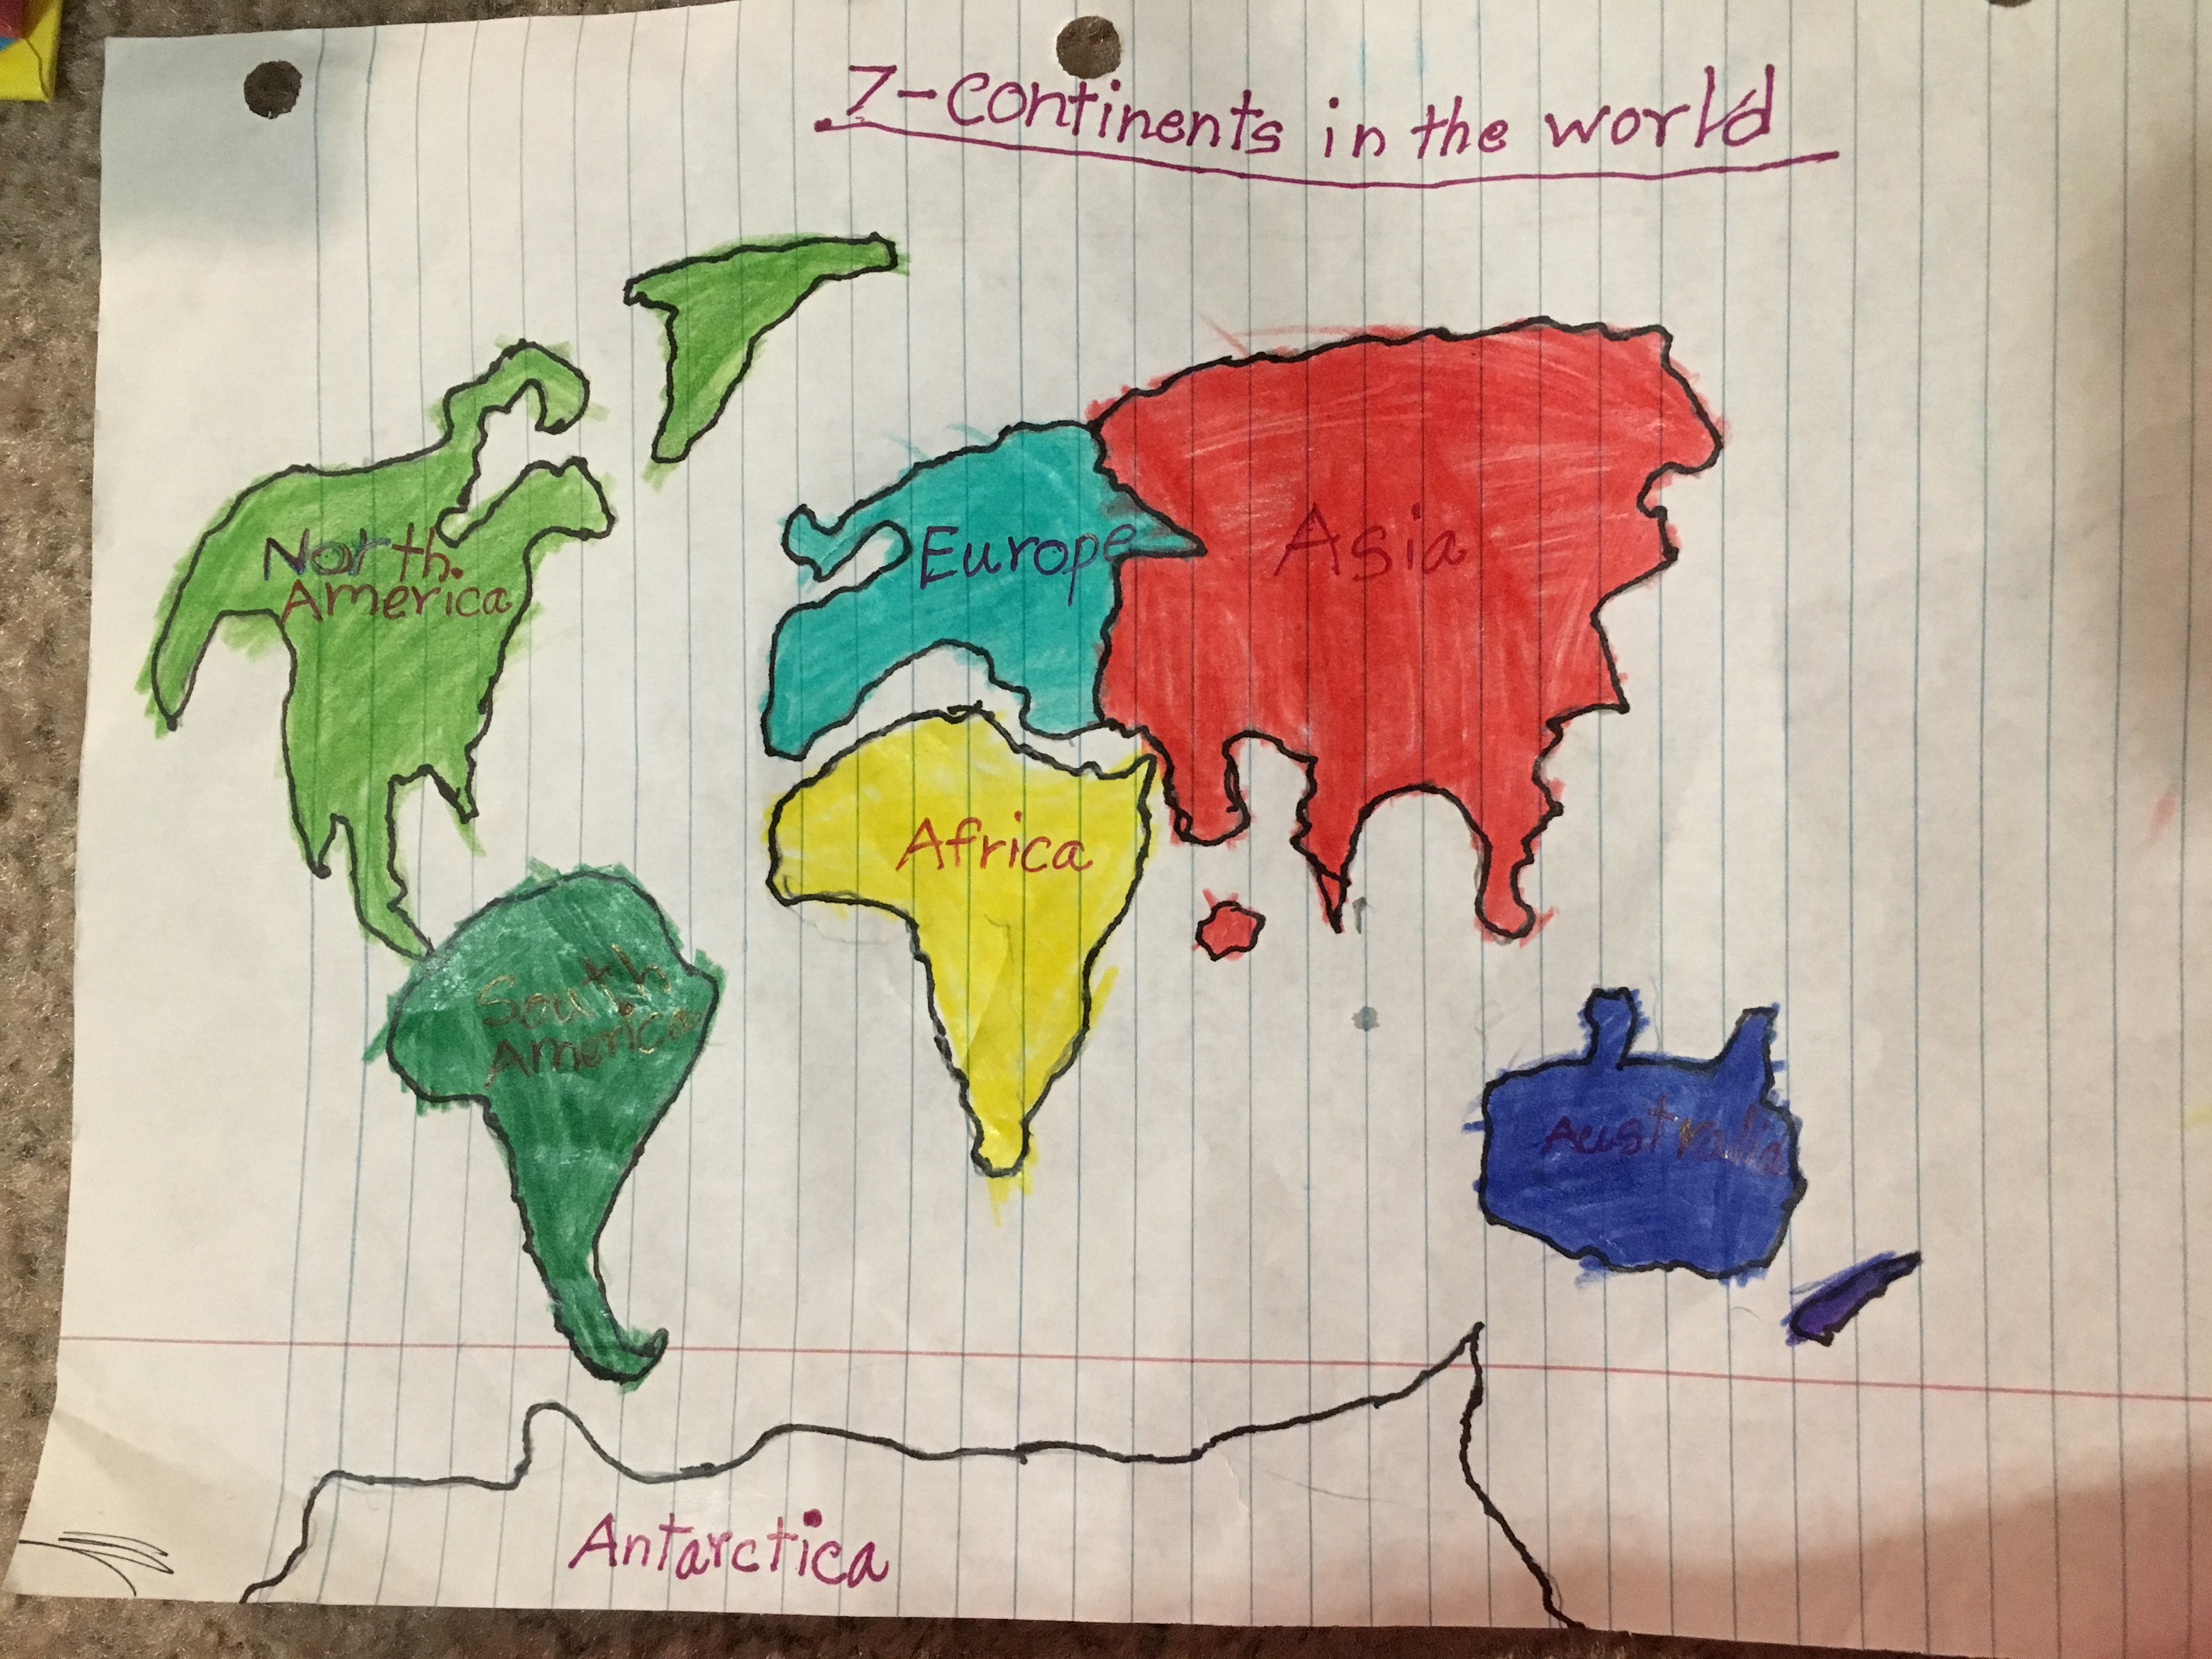 7-Continents in the world
North
America
Europe
Asia
Africa
South
America
Australia
Antarctica